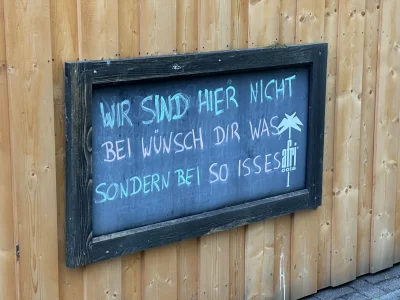 WIR SIND HIER NICHT
BEI WÜNSCH DIR WAS
SONDERN BEI SO ISSES
afri
cola